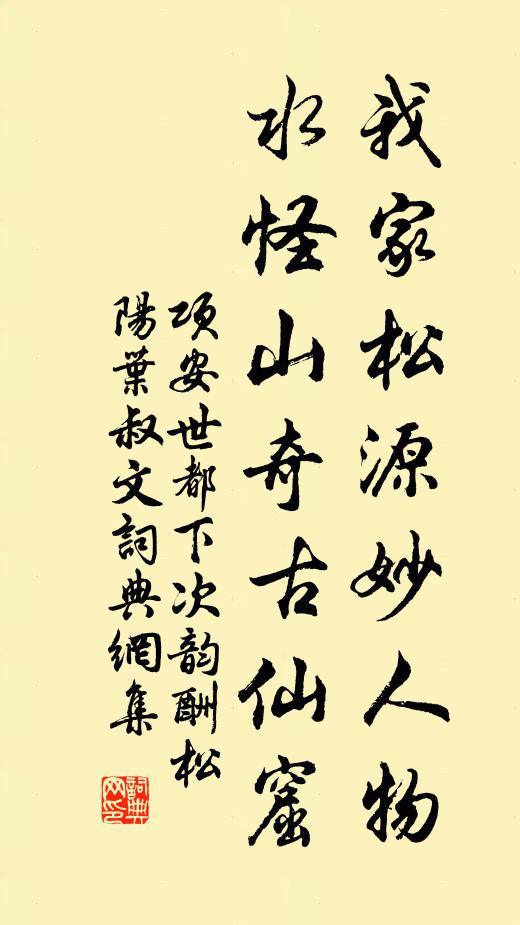 我家松源妙人物
水怪山奇古仙窟
项安世都下次韵酬松
陽葉叔文詞典網集
詞典网印